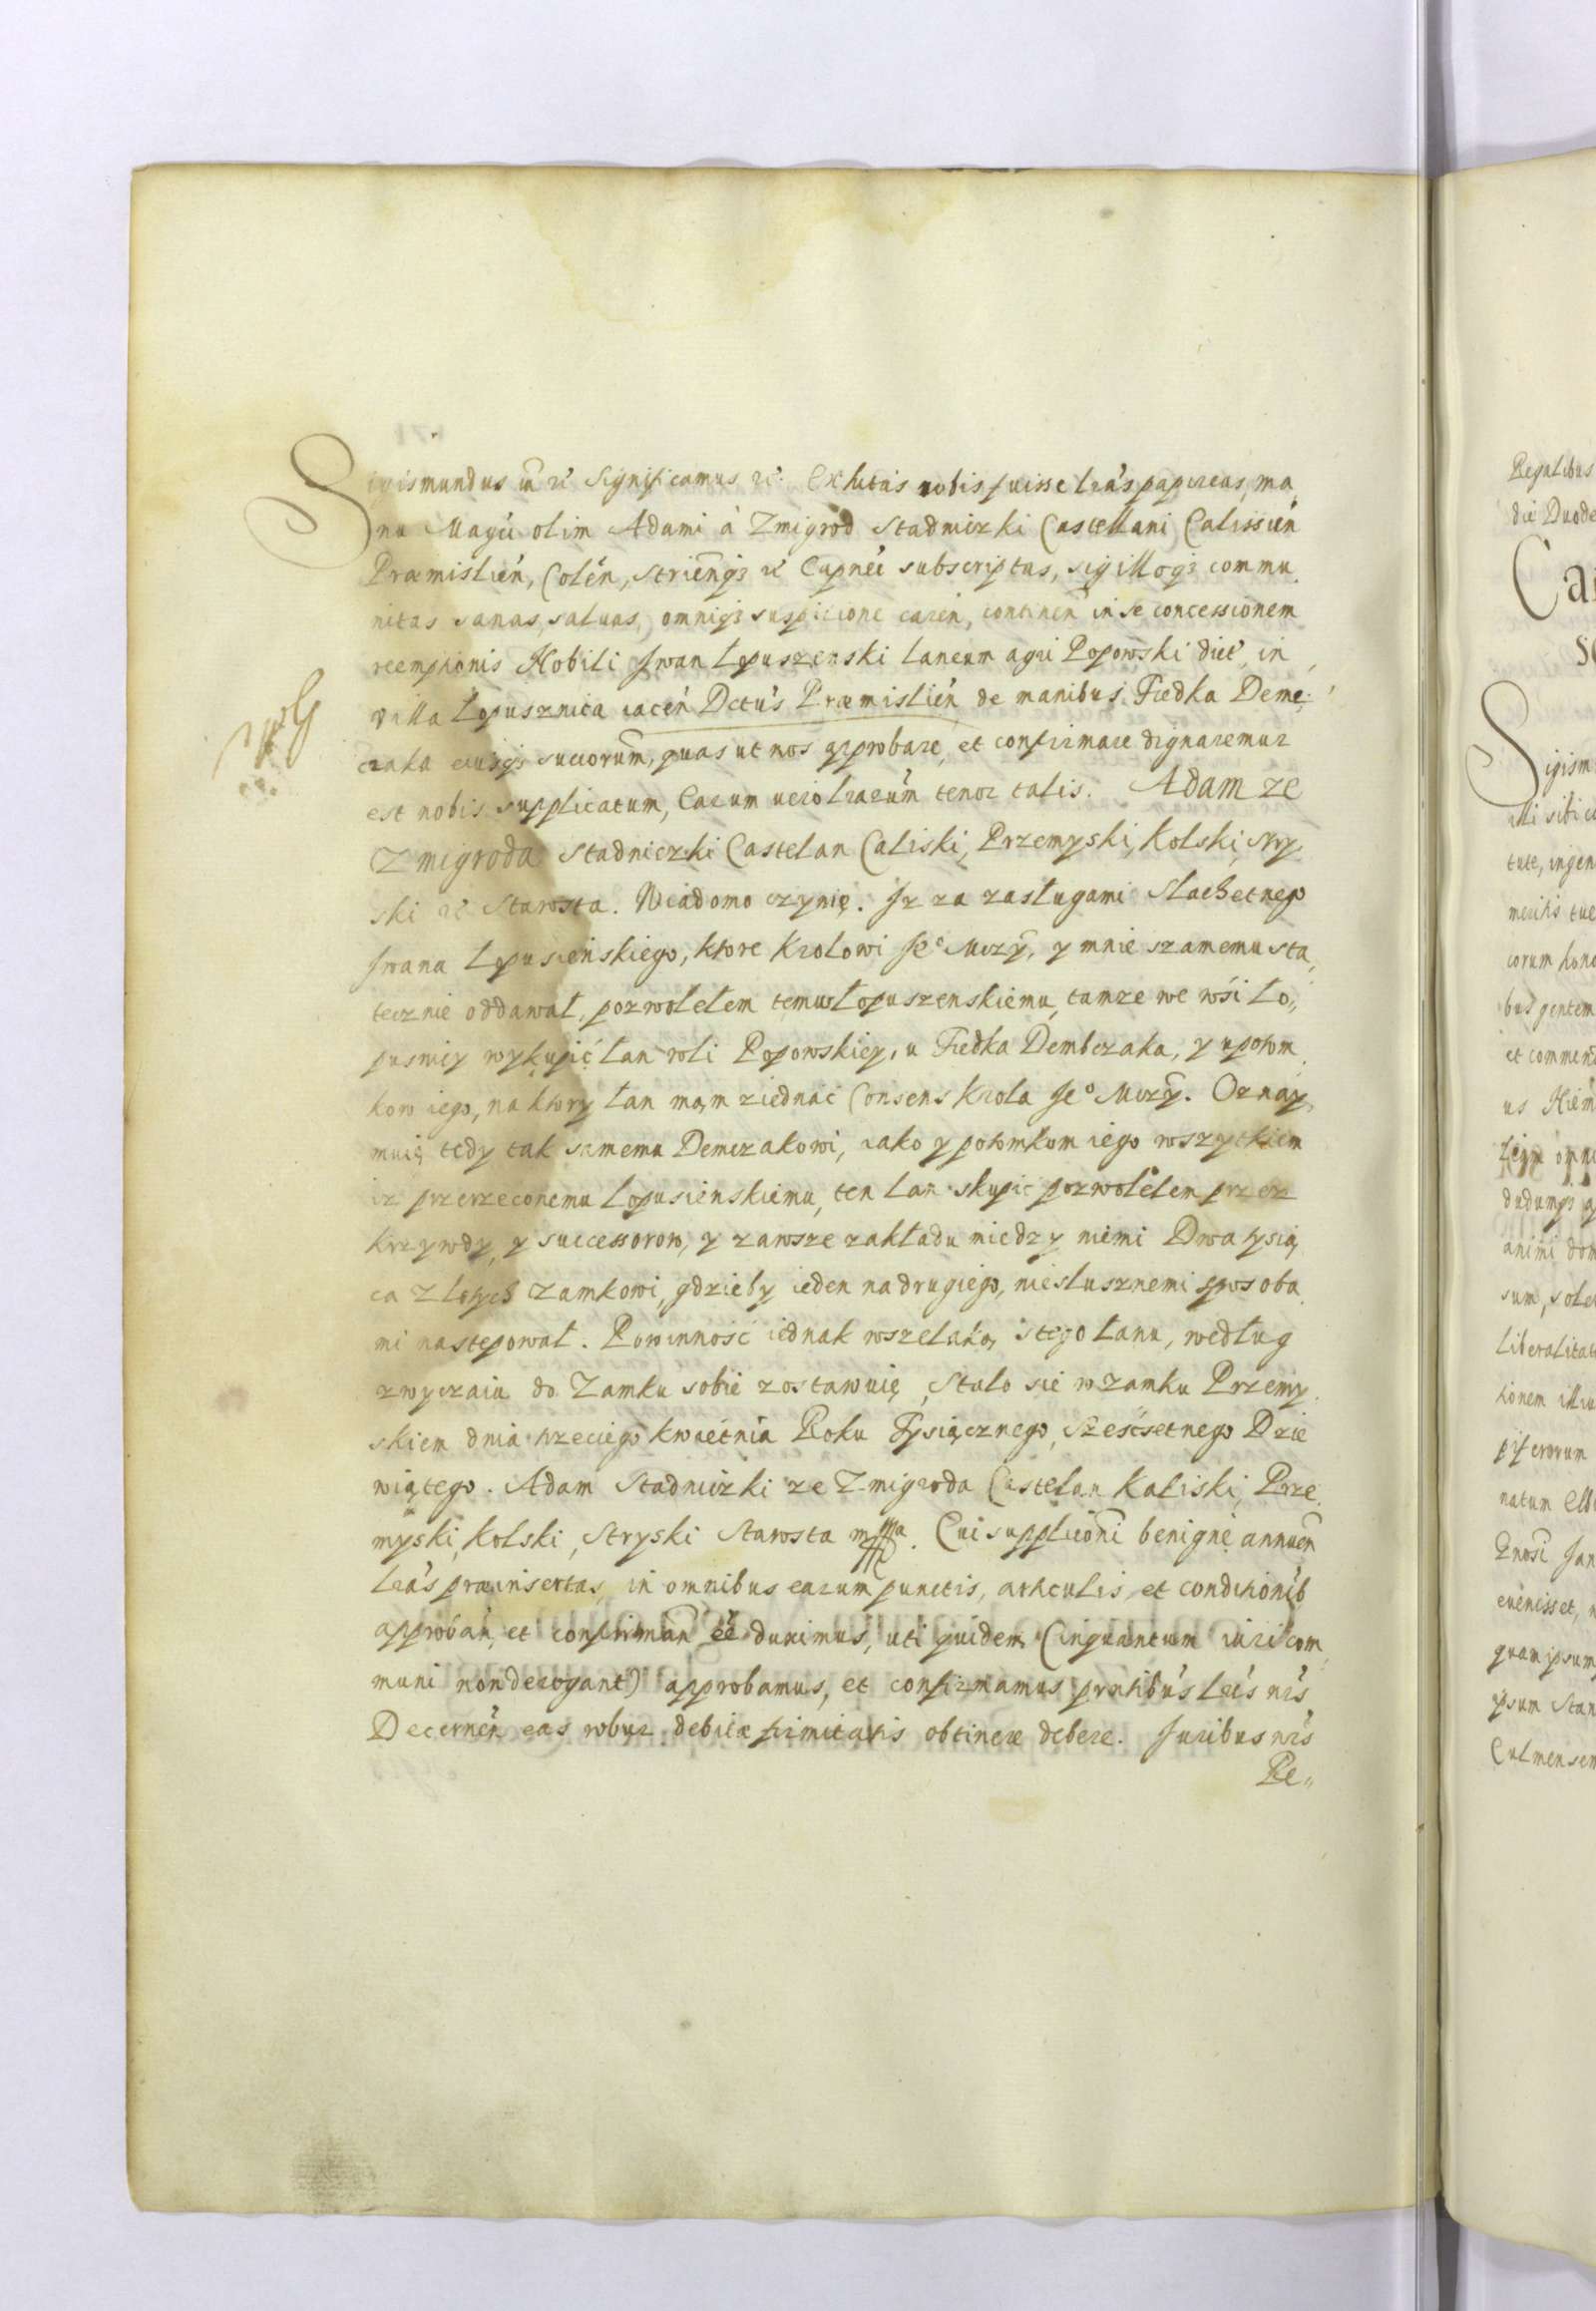 Sigismundus III etc Significamus etc. Exhibitas nobis fuisse lras papireas, ma
nu Magci olim Adami à Zmigrod Stadniczki Castellani Calissien
Præmislien, Colen, Strienqz etc Capnei subscriptas, sigilloqz commu
nitas sanas, salvas, omniqz suspicione caren, continen in se concessionem
reemptionis Nobili Iwan Lopuszenski laneum agri Popowski dict, in
villa Lopusznica iacen Dctus Præmislien de manibus Fiedka Deme
czaka eiusqz succorum, quas ut nos approbare et confirmare dignaremur
est nobis supplicatum, Earum vero lrarum tenor talis. Adam ze
Zmigroda Stadniczki Castelan Caliski, Przemyski, Kolski, Stry
ski etc Starosta. Wiadomo czynię. Iz za zasługami Slachetnego
Iwana Lopusieńskiego, ktore Krolowi Jeo Mczy, y mnie szamemu sta
tecznie oddawał, pozwoliłem temuż Łopuszenskiemu, tamze we wśi Ło„
pusniey wykupić łan roli Popowskiey, u Fiedka Dembczaka, y u potom
kow iego, na ktory łan mąm ziednać Consens Krola Jeo Mczy. Oznay
muię tedy tak samemu Demczakowi, iako y potomkom iego wszytkiem
iz przerzeconemu Lopusienskiemu, ten lan skupić pozwolełem przez
krzywdy, y successorow, y zawsze zakładu miedzy niemi Dwa tysią
ca złotych Zamkowi, gdzieby ieden na drugiego, niesłusznemi sposoba
mi nastepował. Powinność iednak wszelaką, s tego łanu, według
zwyczaiu do Zamku sobie zostawuię, Stało sie w zamku Przemy
skiem dnia trzeciego kwietnia Roku Tysiącznego, Sześćsetnego Dzie
wiątego. Adam Stadniczki ze Zmigroda Castelan Kaliski, Prze
myski, Kolski, Stryski Starosta mppa. Cui suppliconi benignè annuen
lras præinsertas, in omnibus earum punctis, articulis, et conditionib
approban, et confirman eé duximus, uti quidem (inquantum iuri com
muni non derogant) approbamus, et confirmamus pntibus lris nris
Decernen eas robur debitæ firmitatis obtinere debere. Iuribus nris
Re„
Regalibus
die Duode
Ca
Sigism
tute, ingen
meritis tue
corum hono
bus gentem
et commend
us Niem
animi dom
liberalitat
natum
evenisset,
quam ipsum
ipsum Stan
Culmensem